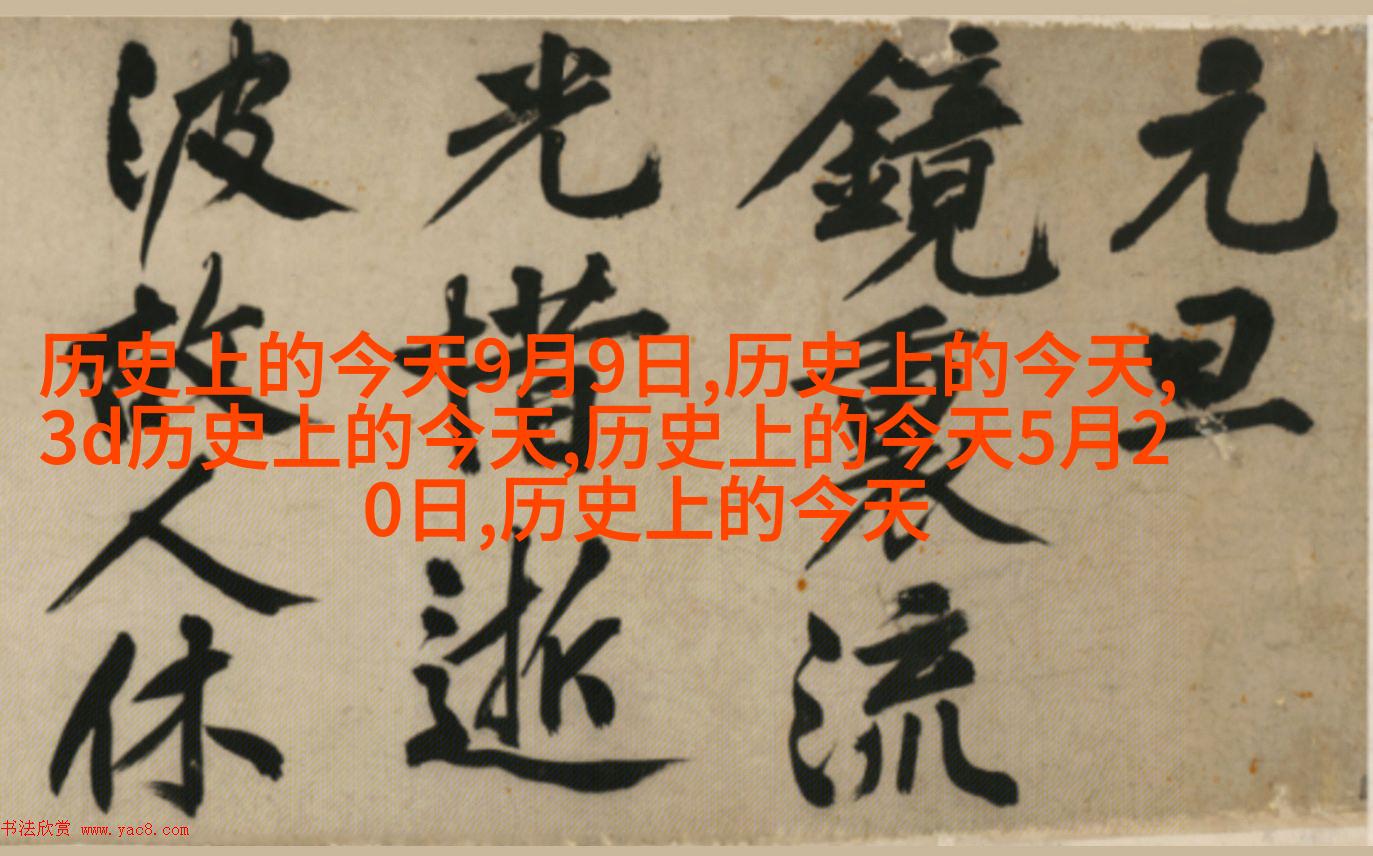 元旦
鏡裏流
光惜逝
波故人休
历史上的今天9月9日,历史上的今天,
3d历史上的今天,历史上的今天5月2
0日,历史上的今天
书法欣赏 www.yac8.com